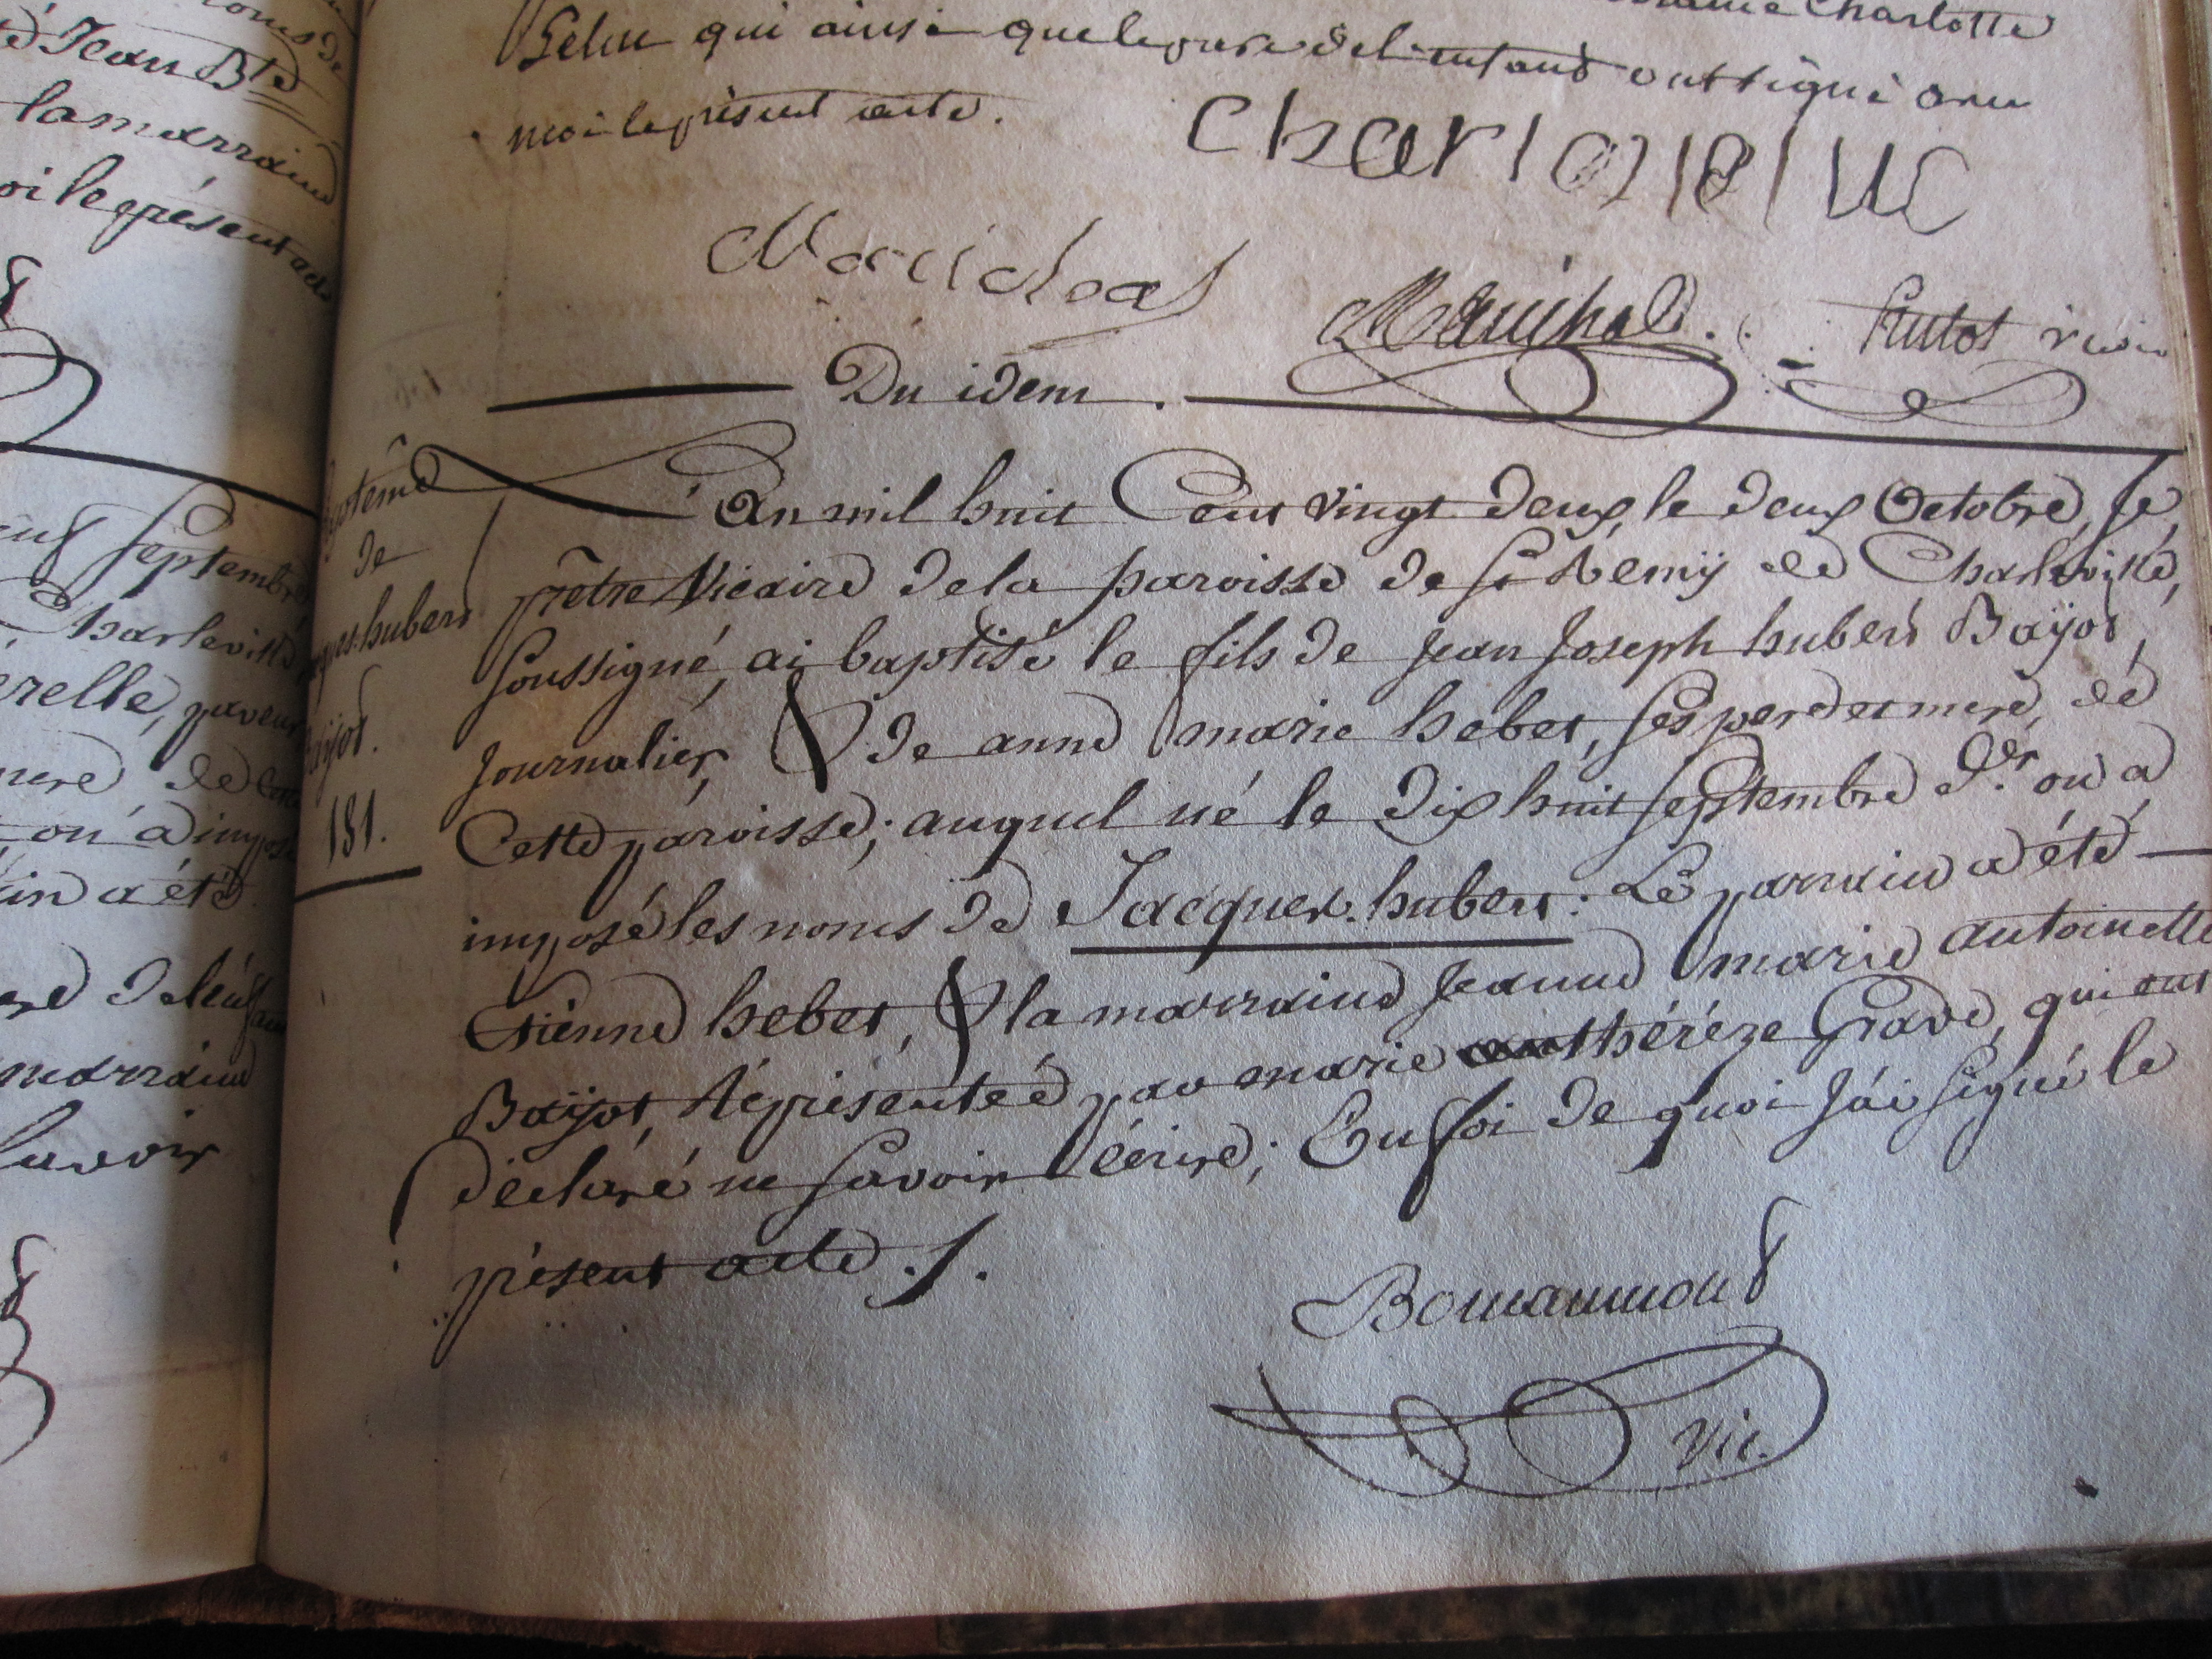 Charlotte
qui ainsi que le pere de l'enfant ont signé avec
moi le présent acte.
Marichal
Marichal.
Du idem.
Baptême
de
Jacques-hubert
Bayot.
181.
L'An mil huit Cent vingt deux, le deux Octobre, Je,
prêtre Vicaire de la paroisse de St Remÿ de Charleville,
Soussigné, ai baptisé le fils de Jean Joseph hubert Baÿot,
Journalier, & de anne marie hebet, ses pere et mere, de
Cette paroisse; auquel né le dix huit Septembre der. on a
imposé les noms de Jacques-hubert: Le parrain a été
Etienne hebet, & la marraine Jeanne marie antoinette
Baÿot, Réprésenteé par marie thérèze Grave, qui ont
déclaré ne Savoir écrire; En foi de quoi J'ai Signé le
présent acte ./.
Vic.
Septembre
Charleville
la marraine
oi le présent acte
mere, de
on a imposé
in a été
de l'enfant
marraine
Savoir
Jean Bte